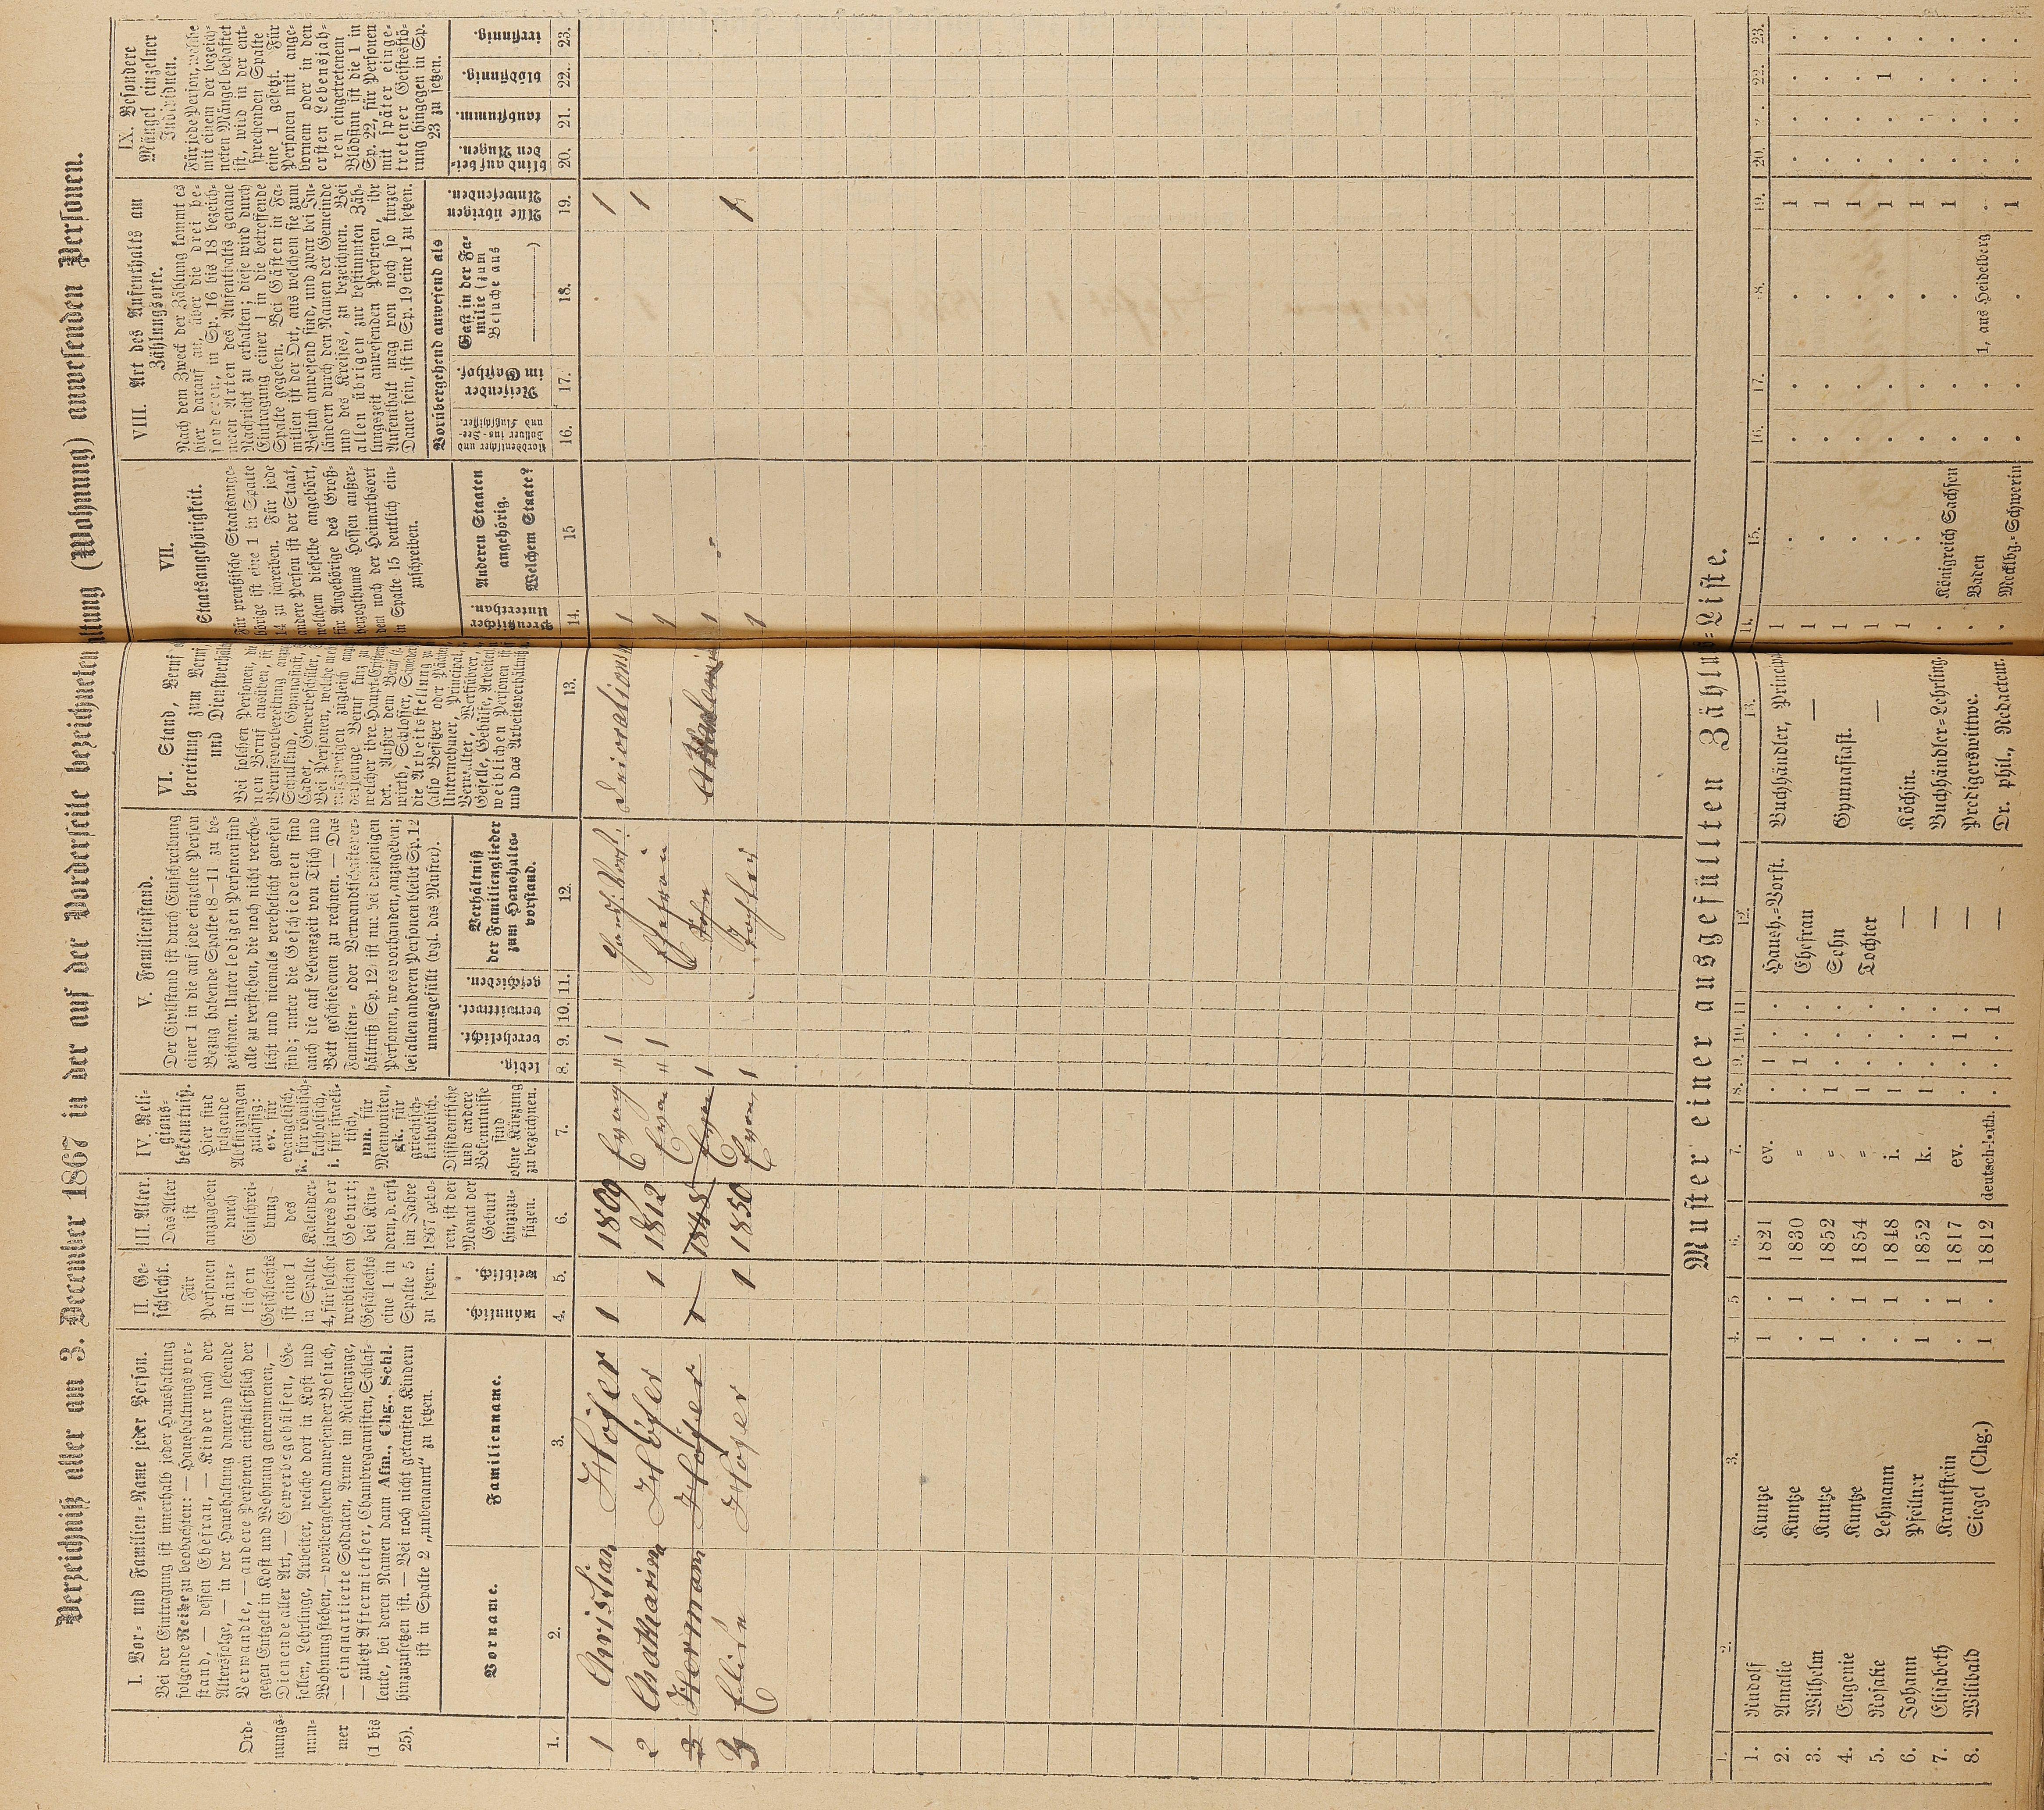 Verzeichniß aller am 3. December 1867 in der auf der Vorderseite bezeichneten Haushaltung (Wohnung) anwesenden Personen.
I. Vor- und Familien-Name jeder Person.
Bei der Eintragung ist innerhalb jeder Haushaltung
folgende Reihe zu beobachten: — Haushaltungsvor-
stand, — dessen Ehefrau, — Kinder nach der
Altersfolge, — in der Haushaltung dauernd lebende
Verwandte, — andere Personen einschließlich der
gegen Entgelt in Kost und Wohnung genommenen, —
Dienende aller Art, — Gewerbsgehülfen, Ge-
sellen, Lehrlinge, Arbeiter, welche dort in Kost und
Wohnung stehen, — vorübergehend anwesender Besuch,
— einquartierte Soldaten, Arme im Reihenzuge,
— zuletzt Aftermiether, Chambregarnisten, Schlaf-
leute, bei deren Namen dann Afm., Chg., Schl.
hinzuzusetzen ist. — Bei noch nicht getauften Kindern
ist in Spalte 2 „unbenannt“ zu setzen.
Ord-
nungs-
num-
mer
(1 bis
25).
1.
Vorname.
2.
Familienname.
3.
II. Ge-
schlecht.
Für
Personen
männ-
lichen
Geschlechts
ist eine 1
in Spalte
4, für solche
weiblichen
Geschlechts
eine 1 in
Spalte 5
zu setzen.
männlich.
4.
weiblich.
5.
III. Alter.
Das Alter
ist
anzugeben
durch
Einschrei-
bung
des
Kalender-
jahres der
Geburt;
bei Kin-
dern, d. erst
im Jahre
1867 gebo-
ren, ist der
Monat der
Geburt
hinzuzu-
fügen.
6.
IV. Reli-
gions-
bekenntniß.
Hier sind
folgende
Abkürzungen
zulässig:
ev. für
evangelisch,
k. für römisch-
katholisch,
i. für israeli-
tisch,
mn. für
Mennoniten,
gk. für
griechisch-
katholisch.
Dissidentische
und andere
Bekenntnisse
sind
ohne Kürzung
zu bezeichnen.
7.
V. Familienstand.
Der Civilstand ist durch Einschreibung
einer 1 in die auf jede einzelne Person
Bezug habende Spalte (8—11) zu be-
zeichnen. Unter ledigen Personen sind
alle zu verstehen, die noch nicht verehe-
licht und niemals verehelicht gewesen
sind; unter die Geschiedenen sind
auch die auf Lebenszeit von Tisch und
Bett geschiedenen zu rechnen. — Das
Familien- oder Verwandtschaftsver-
hältniß (Sp. 12) ist nur bei denjenigen
Personen, wo es vorhanden, anzugeben;
bei allen anderen Personen bleibt Sp. 12
unausgefüllt (vgl. das Muster).
ledig.
8.
verehelicht.
9.
verwittwet.
10.
geschieden.
11.
Verhältniß
der Familienglieder
zum Haushalts-
vorstand.
12.
VI. Stand, Beruf
bereitung zum Beruf,
und Dienstverhält
Bei solchen Personen,
nen Beruf ausüben, ist
Berufsvorbereitung
Schulkind, Gymnasiast,
Cadet, Gewerbeschüler,
Bei Personen, welche
welcher ihre Haupt-
det. Außer dem Beruf
wirth, Schlosser,
die Arbeitsstellung
(also Besitzer oder Päch
Unternehmer, Principal,
Verwalter, Werkführer,
Geselle, Gehülfe, Arbeiter
weiblichen Personen
und das Arbeitsverhältniß
13.
VII.
Staatsangehörigkeit.
Für preußische Staatsange-
hörige ist eine 1 in Spalte
14 zu schreiben. Für jede
andere Person ist der Staat,
welchem dieselbe angehört,
für Angehörige des Groß-
herzogthums Hessen außer-
dem noch der Heimathsort
in Spalte 15 deutlich ein-
zuschreiben.
Preußischer
Unterthan.
14.
Anderen Staaten
angehörig.
Welchem Staate?
15
VIII. Art des Aufenthalts am
Zählungsorte.
Nach dem Zweck der Zählung kommt es
hier darauf an, über die drei be-
sonderen, in Sp. 16 bis 18 bezeich-
neten Arten des Aufenthalts genaue
Nachricht zu erhalten; diese wird durch
Eintragung einer 1 in die betreffende
Spalte gegeben. Bei Gästen in Fa-
milien ist der Ort, aus welchem sie zum
Besuch anwesend sind, und zwar bei In-
ländern durch den Namen der Gemeinde
und des Kreises, zu bezeichnen. Bei
allen übrigen zur bestimmten Zäh-
lungszeit anwesenden Personen, ihr
Aufenthalt mag von noch so kurzer
Dauer sein, ist in Sp. 19 eine 1 zu setzen.
Vorübergehend anwesend als
Norddeutscher
und Flußschiffer.
16.
Reisender
im Gasthof.
17.
Gast in der Fa-
milie (zum
Besuche aus
———)
18.
Alle übrigen
Anwesenden.
19.
IX. Besondere
Mängel einzelner
Individuen.
Für jede Person, welche
mit einem der bezeich-
neten Mängel behaftet
ist, wird in der ent-
sprechenden Spalte
eine 1 gesetzt. Für
Personen mit ange-
bornem oder in den
ersten Lebensjah-
ren eingetretenem
Blödsinn ist die 1 in
Sp. 22, für Personen
mit später einge-
tretener Geistesstö-
rung hingegen in Sp.
23 zu setzen.
blind auf bei-
den Augen.
20.
taubstumm.
21.
blödsinnig.
22.
irrsinnig.
23.
1 Christian Höfer 1 1809 Evag " 1 Haush. Vorst. 1 1
2 Chatharina Höfer 1 1812 Evan " 1 Ehefrau 1 1
3 Hermann Höfer 1 1845 Evan 1 Sohn 1
3 Elise Höfer 1 1850 Evan 1 Tochter 1 1
Muster einer ausgefüllten Zählungs-Liste.
1. 2. 3. 4. 5 6. 7. 8. 9. 10. 11 12. 13. 14. 15. 16. 17. 18. 19. 20. 21. 22. 23.
1. Rudolf Kuntze 1 . 1821 ev. . 1 . . Haush.-Vorst. Buchhändler, Principal 1 . . . . 1 . . . .
2. Amalie Kuntze . 1 1830 " . 1 . . Ehefrau — 1 . . . . 1 . . . .
3. Wilhelm Kuntze 1 . 1852 " 1 . . . Sohn Gymnasiast. 1 . . . . 1 . . . .
4. Eugenie Kuntze . 1 1854 " 1 . . . Tochter — 1 . . . . 1 . . 1 .
5. Rosalie Lehmann . 1 1848 i. 1 . . . — Köchin. 1 . . . . 1 . . . .
6. Johann Pfeilner 1 . 1852 k. 1 . . . — Buchhändler-Lehrling. . Königreich Sachsen . . . 1 . . . .
7. Elisabeth Krautstein . 1 1817 ev. . . 1 . — Predigerswittwe. . Baden . . 1, aus Heidelberg . . . . .
8. Wilibald Siegel (Chg.) 1 . 1812 deutsch-kath. . . . 1 — Dr. phil., Redacteur. . Mecklbg.-Schwerin . . . 1 . . . .